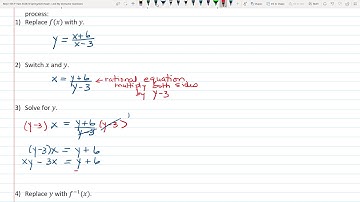 process:
1) Replace f(x) with y.
y = x+6 / x-3
2) Switch x and y.
x = y+6 / y-3 ← rational equation,
multiply both sides
by y-3
3) Solve for y.
(y-3) x = y+6 / y-3 (y-3)
(y-3)x = y+6
xy - 3x = y+6
4) Replace y with f⁻¹(x).